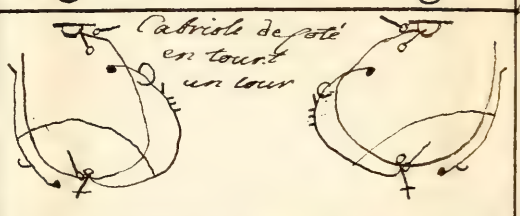 Cabriole de coté
en tourt
un tour